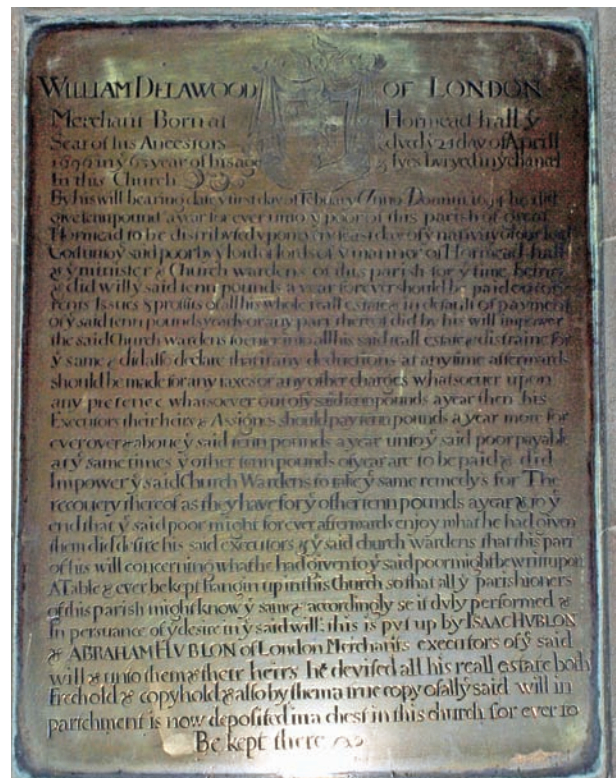 WILLIAM DELAWOOD OF LONDON
Merchant Born at Hormead hall ẙ
Seat of his Ancestors dyed ẙ 21 day of Aprill
in ẙ 63 year of his age & lyes buryed in ẙ chancel
In this Church
By his will bearing date ẙ first day of February Anno Domini he did
give tenn pound a year for ever unto ẙ poor of this parish of Great
Hormead to be distributed upon every feast day of ẙ nativity of our lord
God unto ẙ said poor by ẙ lord of lords of ẙ mannor of Hormead hall
& ẙ minister & Church wardens of this parish for ẙ time being
& did will ẙ said tenn pounds a year forever should be paid out of ẙ
rents Issues & profitts of all his whole reall estate & in default of payment
of ẙ said tenn pounds yearly or any part thereof did by his will impower
the said Church wardens to enter into all his said reall estate & distraine for
ẙ same & did also declare that if any deductions at any time afterwards
should be made for any taxes or any other charges whatsoever upon
any pretence whatsoever out of ẙ said tenn pounds a year then his
Executors their heirs & Assignes should pay tenn pounds a year more for
ever over & above ẙ said tenn pounds a year unto ẙ said poor payable
at ẙ same times ẙ other tenn pounds a year are to be paid & did
Impower ẙ said Church Wardens to take ẙ same remedys for The
recovery thereof as they have for ẙ other tenn pounds a year & to ẙ
end that ẙ said poor might for ever afterwards enjoy what he had given
them did desire his said executors & ẙ said church wardens that this part
of his will concerning what he had given to ẙ said poor might be writt upon
A Table & ever be kept hangin up in this Church so that all ẙ parishioners
of this parish might know ẙ same & accordingly se it duly performed &
In persuance of ẙ desire in ẙ said will this is put up by ISAAC HVBLON
& ABRAHAM HVBLON of London Merchants executors of ẙ said
will & unto them & there heirs he devised all his reall estate both
Freehold & copyhold & also by them a true copy of all ẙ said will in
parichment is now deposited in a chest in this church for ever to
Be kept there